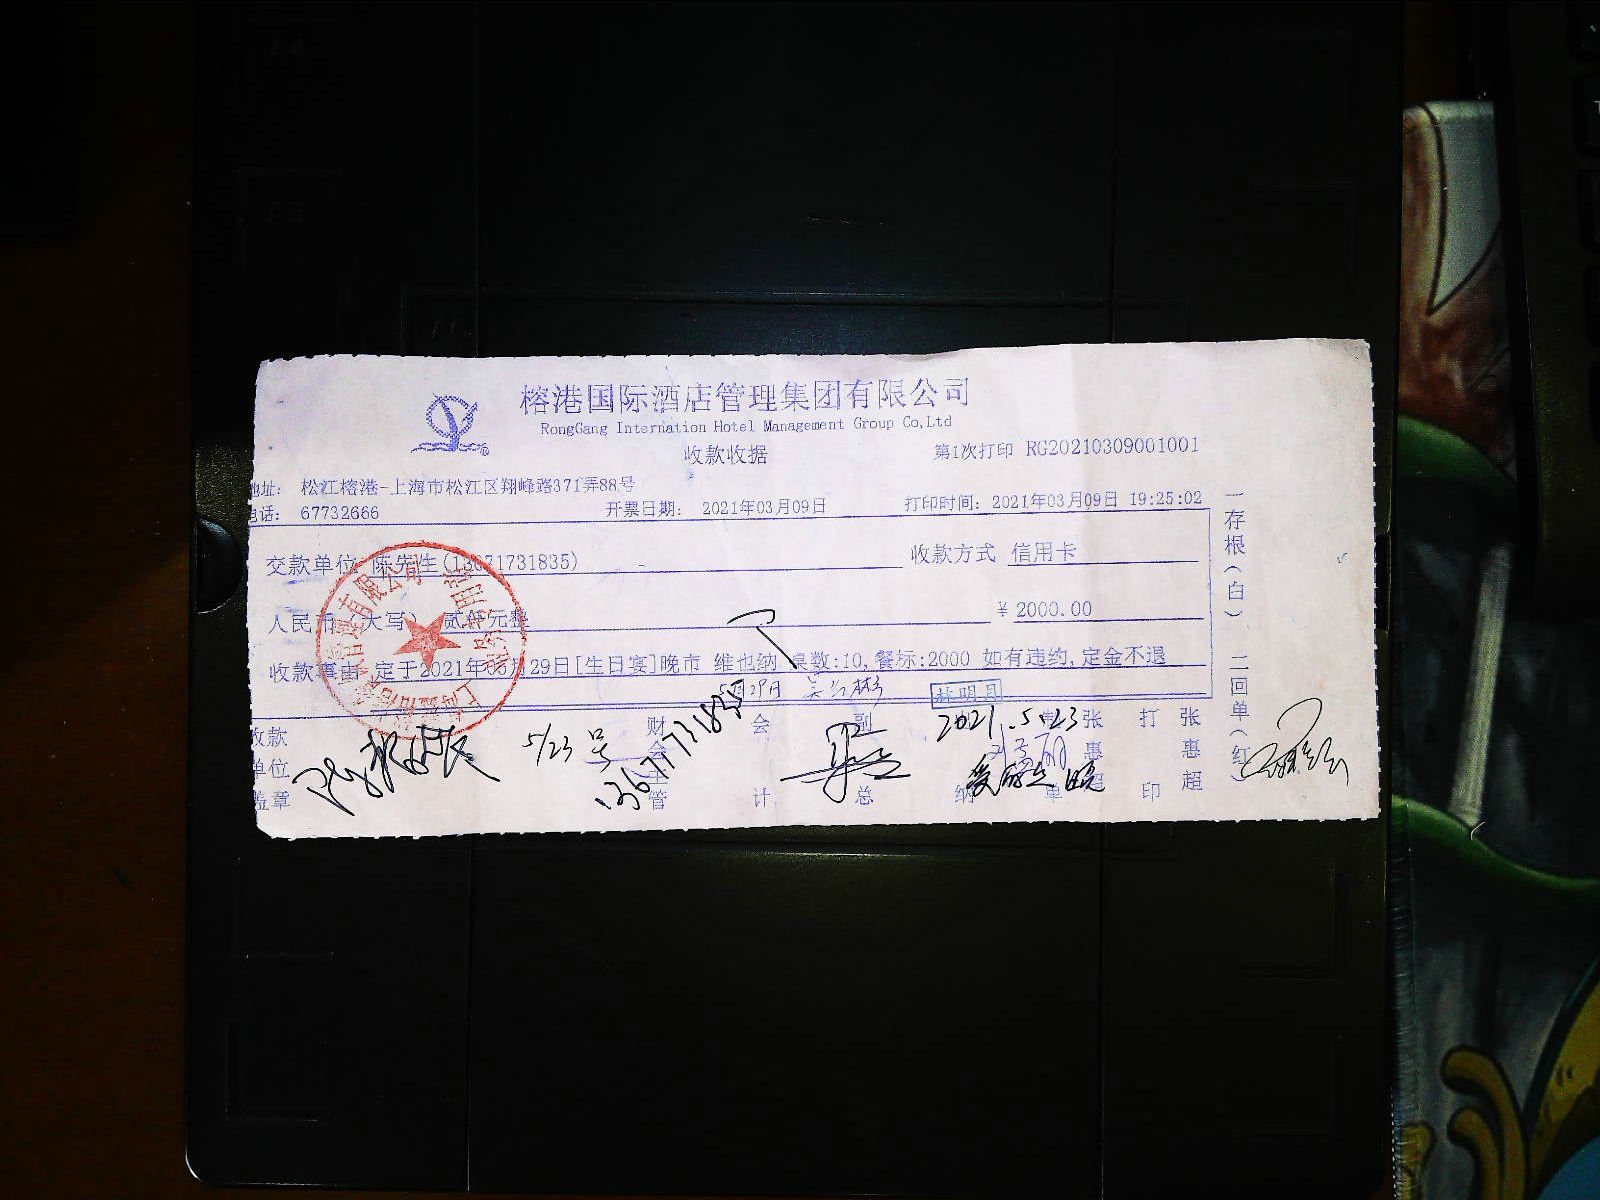 榕港国际酒店管理集团有限公司
RongGang Internation Hotel Management Group Co,Ltd
收款收据
第1次打印 RG20210309001001
地址: 松江榕港-上海市松江区翔峰路371弄88号
电话: 67732666
开票日期: 2021年03月09日
打印时间: 2021年03月09日 19:25:02
交款单位 陈先生(13671731835)
收款方式 信用卡
人民币(大写) 贰仟元整
¥ 2000.00
收款事由 定于2021年05月29日[生日宴]晚市 维也纳 桌数:10,餐标:2000 如有违约,定金不退
5月29日
林明月
收款单位盖章
5/23号
财会主管
会计
副总
2021.5.23
打印
张惠超
一存根(白)
二回单(红)